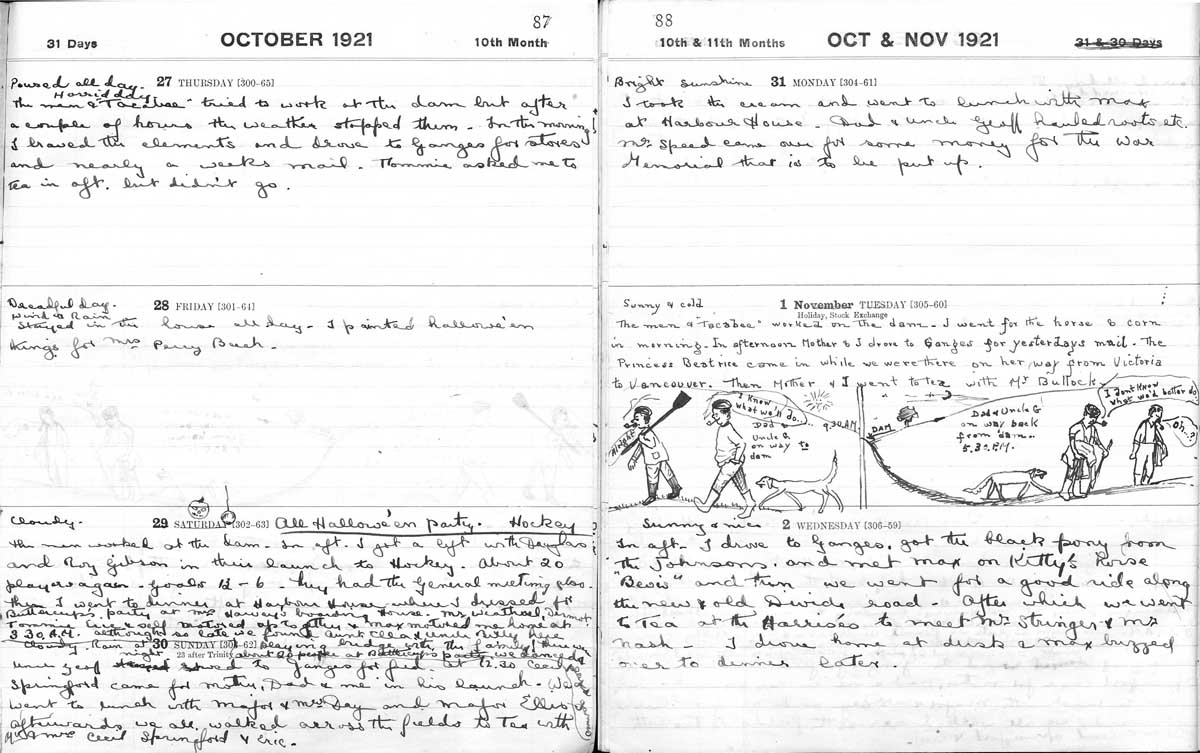 87
31 Days OCTOBER 1921 10th Month
Poured all day. 27 THURSDAY [300-65]
Horrid day
The men & "Tocabee" tried to work at the dam but after
a couple of hours the weather stopped them. In the morning
I braved the elements and drove to Ganges for stores
and nearly a weeks mail. Tommie asked me to
tea in aft. but didn't go.
Dreadful day. 28 FRIDAY [301-64]
Wind & Rain
Stayed in the house all day - I painted hallowe'en
things for Mrs Percy Beech.
Cloudy. 29 SATURDAY [302-63] All Hallowe'en party. Hockey
The men worked at the dam. In aft. I got a lift with Douglas
and Roy Gibson in their launch to Hockey. About 20
players again - goals 12 - 6. They had the General meeting also.
Then I went to dinner at Harbour House where I dressed for
Buttercup's party at Mrs boardin House. Mr
Tommie & self motored up together & Max motored me home at
3.30 A.M. although so late we found Aunt Cela & Uncle here
Cloudy. Rain at 30 SUNDAY [303-62] playing bridge with the family
night 23 after Trinity about 20 people at Buttercup's party we danced
Uncle Geof to Ganges for fuel. At 12.30 Cecil
Springford came for mother, Dad & me in his launch. We
went to lunch with Major & Mrs Day and Major Ellis
afterwards we all walked across the fields to Tea with
Mr & Mrs Cecil Springford & Eric.
88
10th & 11th Months OCT & NOV 1921 31 & 30 Days
Bright sunshine 31 MONDAY [304-61]
I took the cream and went to lunch with Max
at Harbour House. Dad & Uncle Geoff hauled roots etc.
Mr Speed came over for some money for the War
Memorial that is to be put up.
Sunny & cold 1 November TUESDAY [305-60]
Holiday, Stock Exchange
The men & "Tocabee" worked on the dam. I went for the horse & corn
in morning. In afternoon Mother & I drove to Ganges for yesterdays mail. The
Princess Beatrice come in while we were there on her way from Victoria
to Vancouver. Then Mother & I went to tea with Mr Bullock.
Alright
I know
what we'll do...
Dad &
Uncle G.
on way to
dam
9.30 AM.
DAM
Dad & Uncle G
on way back
from dam.
5.30. P.M.
I dont know
what we'd better do
Oh..?
Sunny & nice 2 WEDNESDAY [306-59]
In aft. I drove to Ganges, got the black pony from
the Johnsons. and met Max on Kitty's horse
"Bevis" and then we went for a good ride along
the new & old Divide road. After which we went
to Tea at the Harrises to meet Mr Stringer & Mr
Nash. I drove home at dusk & Max buzzed
over to dinner later.